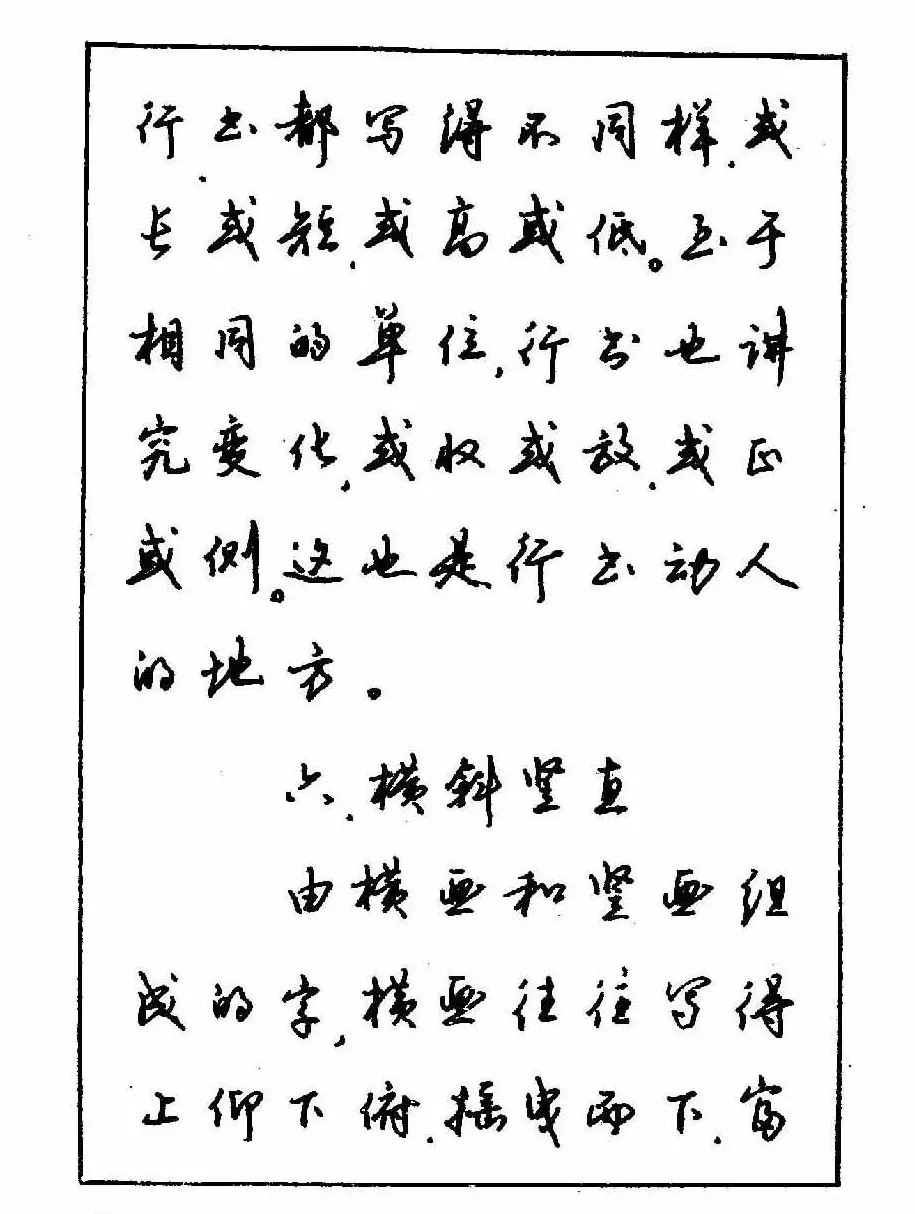 行书都写得不同样,或
长或短,或高或低。至于
相同的单位,行书也讲
究变化,或收或放,或正
或侧。这也是行书动人
的地方。
六、横斜竖直
由横画和竖画组
成的字,横画往往写得
上仰下俯,摇曳而下,富